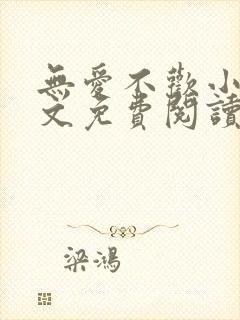 無愛不歡小
文免費閱讀
梁鴻